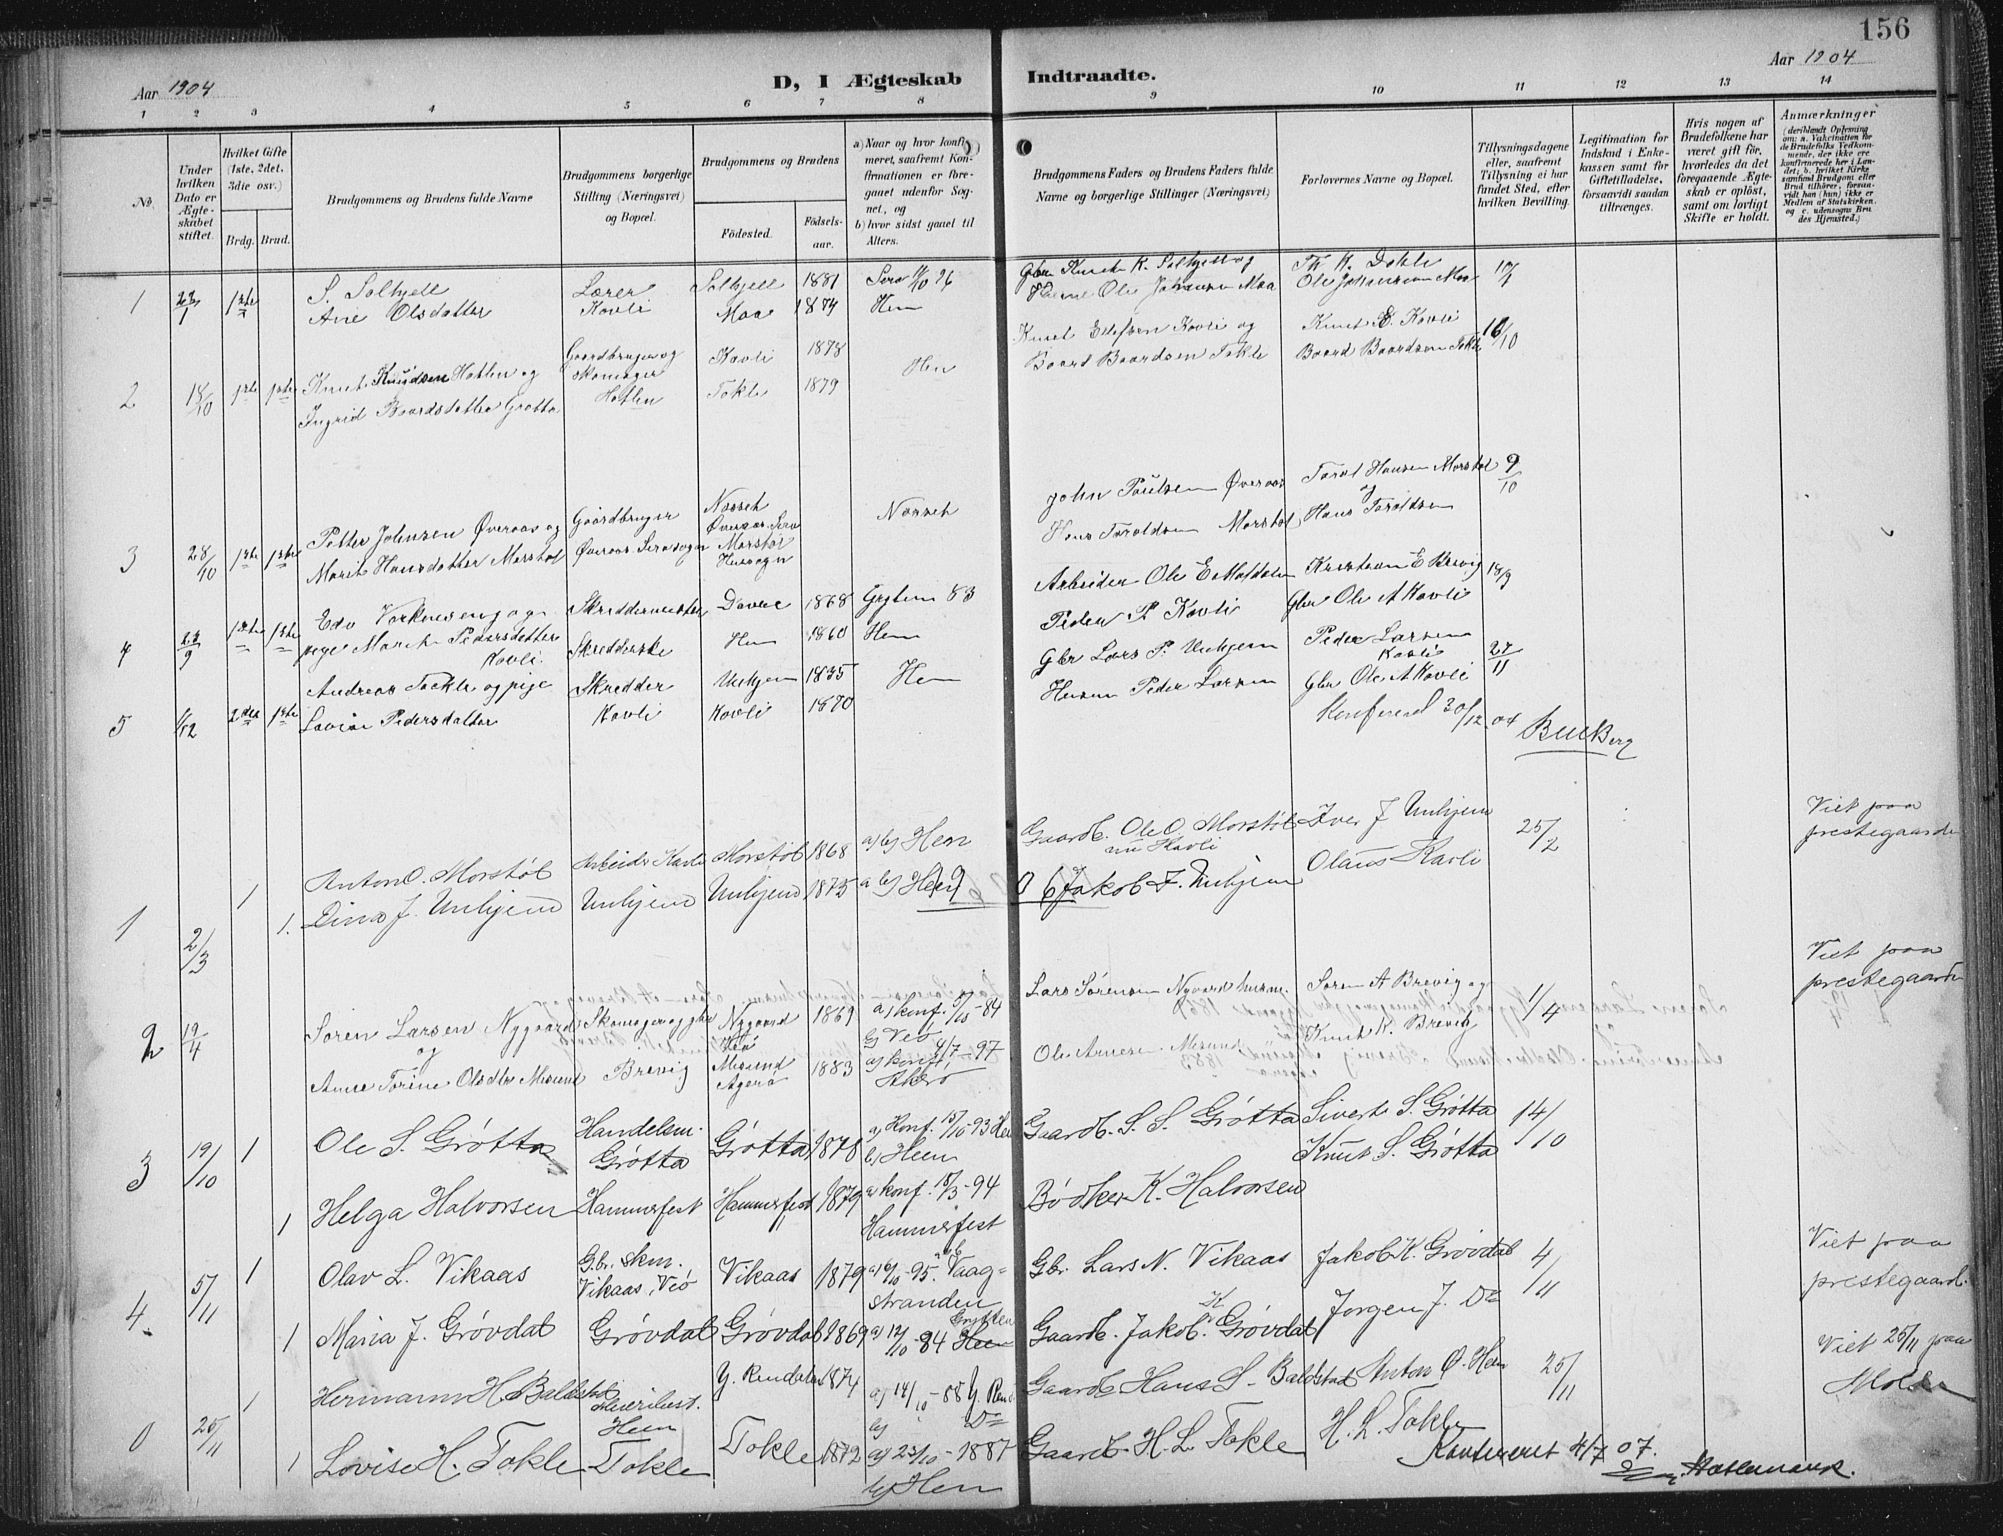 156
Aar 1904
D, I Ægteskab Indtraadte.
Aar 1904
1 2 3 4 5 6 7 8 9 10 11 12 13 14
No.
Under hvilken Dato er Ægteskabet stiftet.
Hvilket Gifte (1ste, 2det, 3die osv.)
Brdg. Brud.
Brudgommens og Brudens fulde Navne
Brudgommens borgerlige Stilling (Næringsvei) og Bopæl.
Brudgommens og Brudens
Födested.
Födsels-aar.
a) Naar og hvor konfirmeret, saafremt Konfirmationen er foregaaet udenfor Sognet, og
b) hvor sidst gaaet til Alters.
Brudgommens Faders og Brudens Faders fulde Navne og borgerlige Stillinger (Næringsvei)
Forlovernes Navne og Bopæl.
Tillysningsdagene eller, saafremt Tillysning ei har fundet Sted, efter hvilken Bevilling.
Legitimation for Indskud i Enkekassen samt for Giftetilladelse, forsaavidt saadan tiltrænges.
Hvis nogen af Brudefolkene har været gift før, hvorledes da det foregaaende Ægteskab er oplöst, samt om lovligt Skifte er holdt.
Anmærkninger
(deriblandt Oplysning om: a. Vakcination for de Brudefolks Vedkommende, der ikke ere konfirmerede her i Landet; b. hvilket Kirkesamfund Brudgom eller Brud tilhörer, forsaavidt han (hun) ikke er Medlem af Statskirken, og c. udensogns Brudes Hjemsted.)
1 1ste S. Solhjell Lærer Solhjell 1881 Knut K. Solhjell og
Ane Olsdatter Kavli Maa 1874 Hen Ole Johansen Maa Ole Johansen Maa
2 18/10 1ste 1ste Knut Knudsen Hatlen og Gaardbruger og Skomager Kavli 1878 Hen Knut Ellefsen Kavli og Knut E. Kavli 16/10
Ingrid Baardsdatter Grøtta Hatlen Tokle 1879 Baard Baardsen Tokle Baard Baardsen Tokle
3 28/10 1ste 1ste Petter Johnsen Øveraas og Gaardbruger Nesset John Paulsen Øveraas 9/10
Marit Hansdatter Morstøl Øveraas Morstøl Hans Taraldsen Morstøl Hans Taraldsen
4 23/9 1ste 1ste Skreddermester 1868 Grytten 83 Arbeider Ole Kristian E Brevig 18/9
pige Marit Pedersdatter Kavli Skredderske Hen 1860 Hen Peder P. Kavli Gbr Ole A Kavli
5 1/12 2det 1ste Andreas Tokle og pige Skredder Unhjem 1835 Hen Gbr Lars P. Unhjem Peder Larsen Kavli 27/11
Pedersdatter Kavli Kavli 1870 Peder Larsen Gbr Ole A Kavli
Konfereret 30/12 04
1 2/3 1 Anton O. Morstøl Arbeider Kavli Morstøl 1868 a) b) Hen Gaardb. Ole O. Morstøl nu Kavli Iver J Unhjem 25/2 Viet paa prestegaarden
1. Dina J. Unhjem Unhjem Unhjem 1875 a b) Hen Jakob I. Unhjem Olaus Kavli
2 19/4 Søren Larsen Nygaard Skomager og gbr Nygaard Veø 1869 a) konf. 5/10-84 b) Veø Lars Sørensen Nygaard Søren A Brevig og 1/4 Viet paa prestegaarden
og
Anne Torine Olsdtr Misund Brevig Misund Agerø 1883 a) konf. 4/7-97 Akerø Ole Arnesen Misund Knut K. Brevig
3 19/10 1 Ole S. Grøtta Handelsm. Grøtta Grøtta 1878 a) Konf. 15/10-93 Hen b) Heen Gaardb. S. S. Grøtta Sivert S. Grøtta 14/10
Knut S. Grøtta
1 Helga Halvorsen Hammerfest Hammerfest 1879 a) konf. 18/3-94 Hammerfest Bødker K. Halvorsen
4. 5/11 1 Olav L. Vikaas G.br. skm. Vikaas, Veø Vikaas 1879 Vaagstranden Gbr. Lars N. Vikaas Jakob K. Grøvdal 4/11 Viet paa prestegaard.
1 Maria J. Grøvdal Grøvdal Grøvdal 1869 a) 12/10-84 Heen Gaardb. Jakob K. Grøvdal Jørgen J. Do
25/11 1 Hermann H. Baldstad Meieribest. Heen Y. Rendalen 1874 a) 14/10-88 Y. Rend. b) Do Gaardb. Hans S. Baldstad Anton Ø. Hen 25/11 Viet 25/11 paa Molde
1 Lovise H. Tokle Tokle Tokle 1872 a) 23/10-1887 b) Hen Gaardb. H. L. Tokle H. L. Tokle
Konfereret 4/7 07.